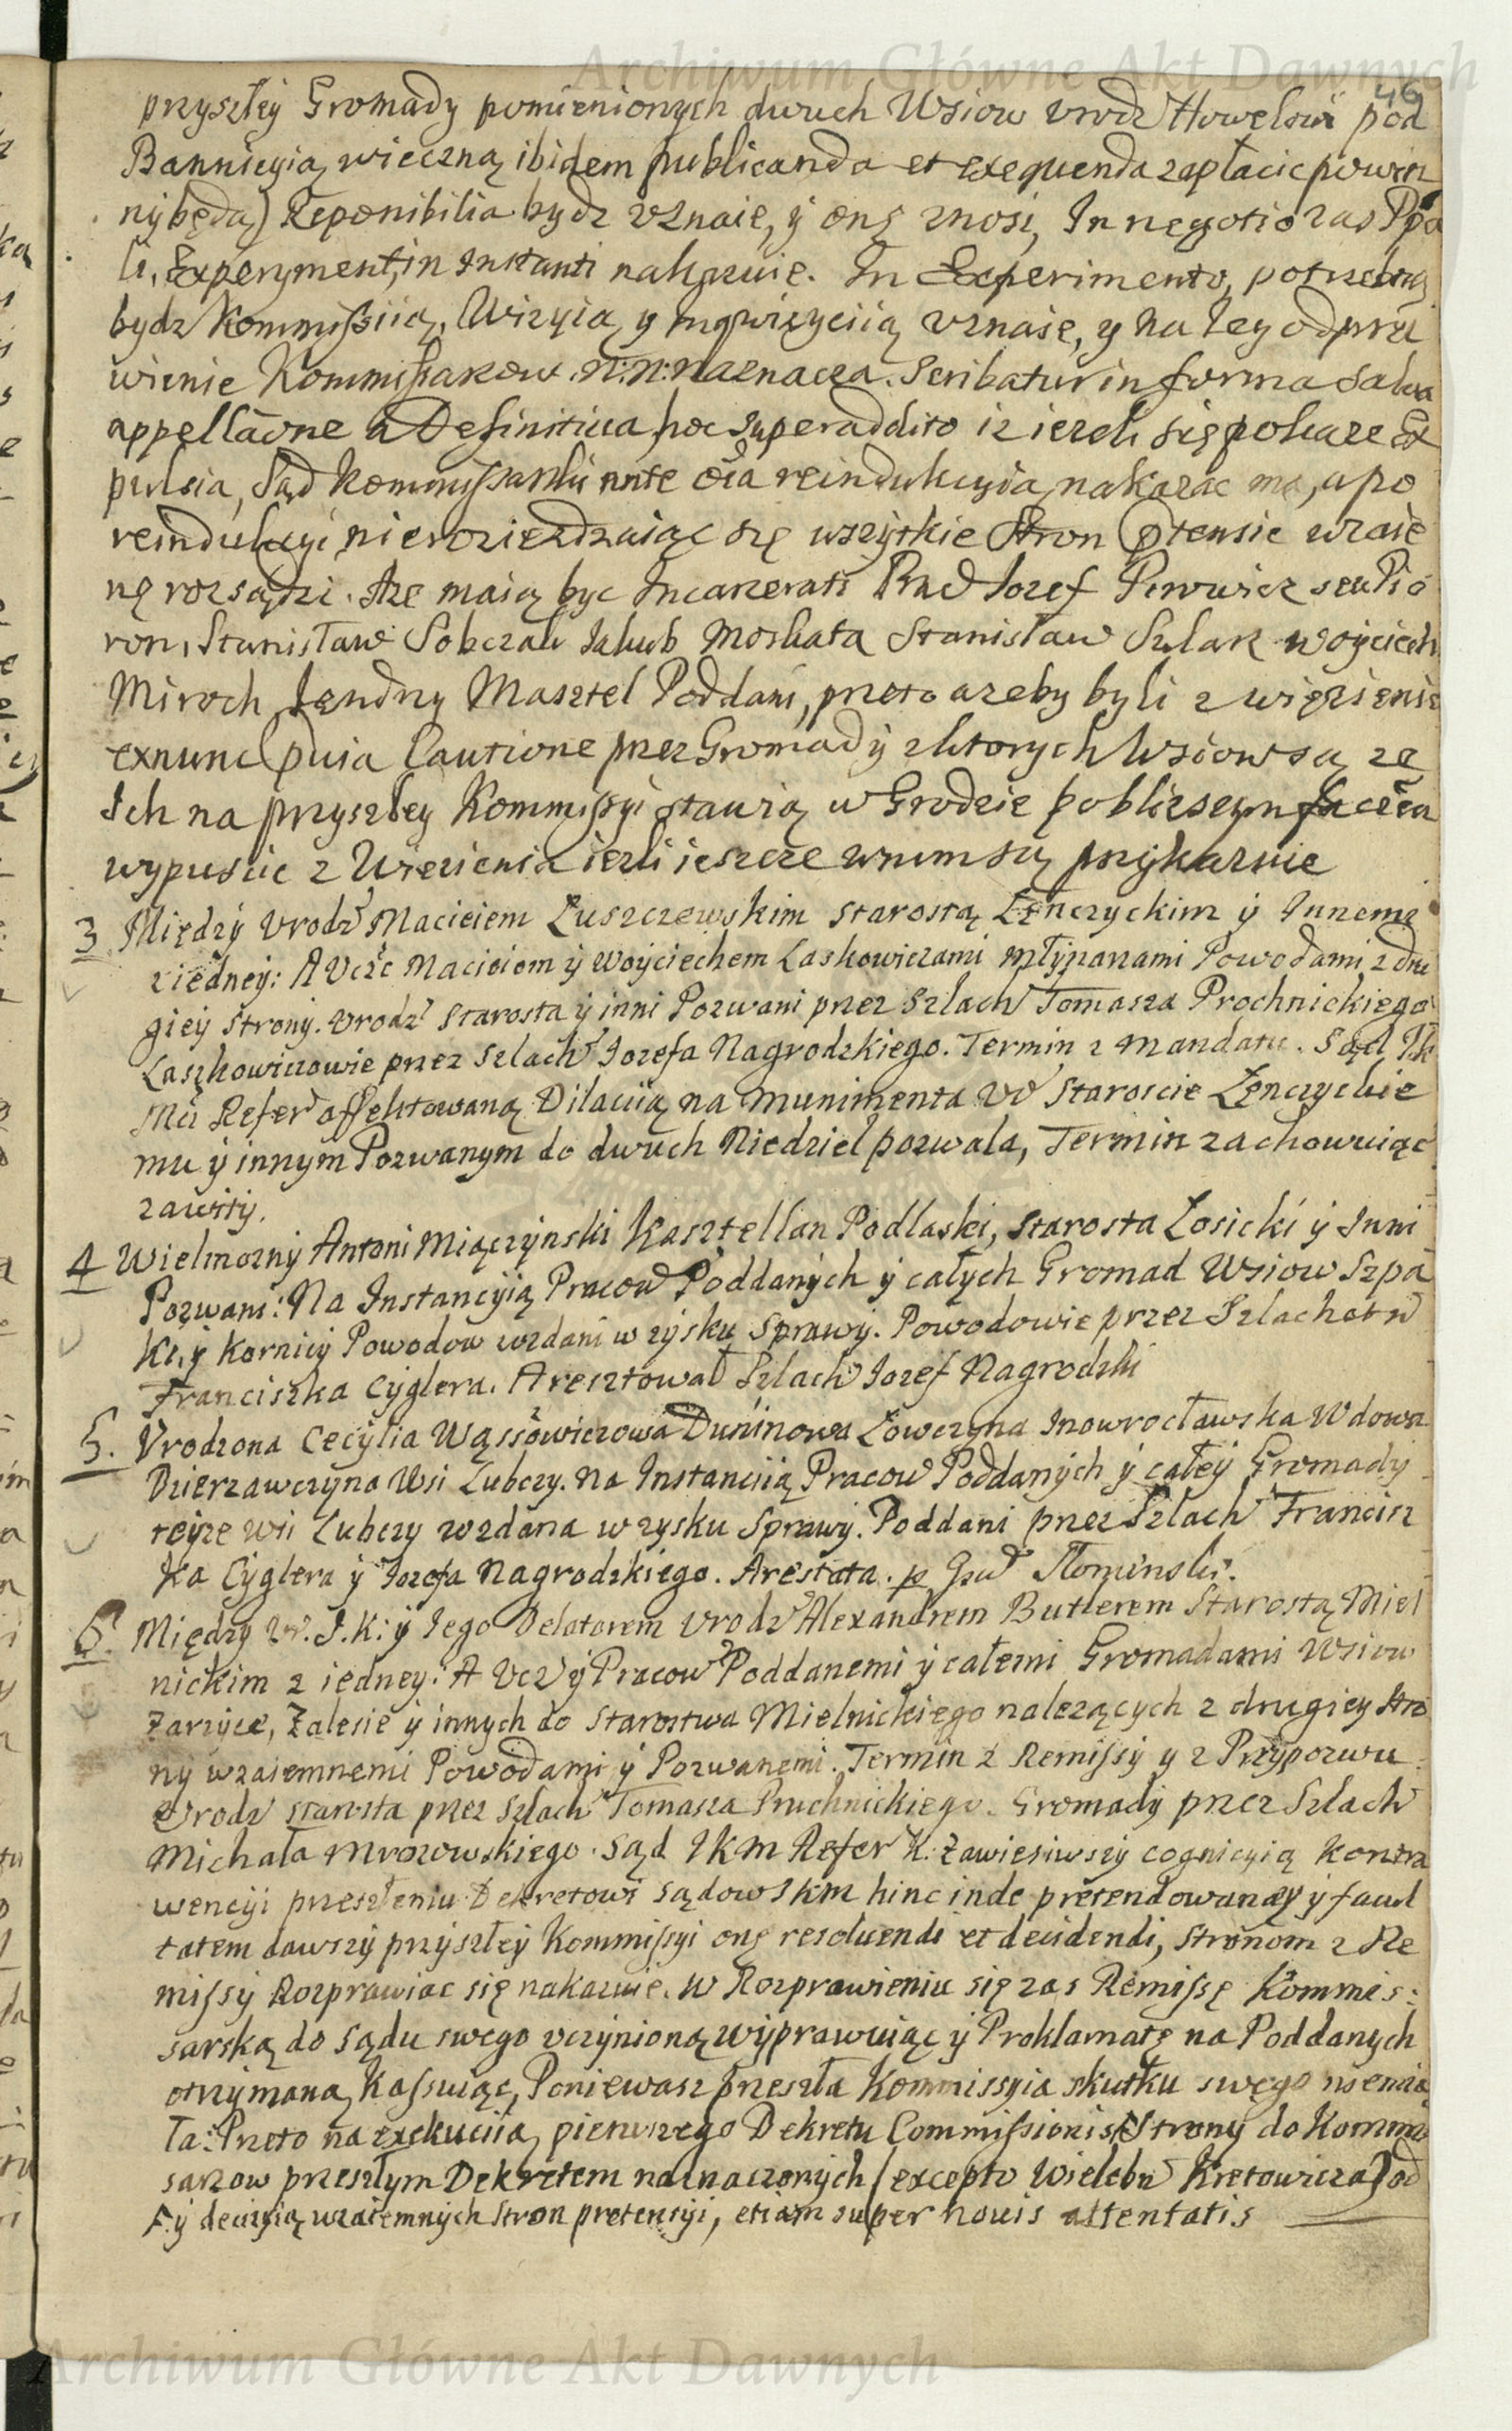 Archiwum Główne Akt Dawnych
46
przyszłey Gromady pomienionych dwuch Wsiow Vrodz pod
Bannicyią wieczną ibidem publicanda et exequenda zapłacic powin
ny będą) Reponibilia bydz vznaie, y onę znosi, In negotio zas Ppa
li, Experyment, in Instanti nakazuie. In Experimento, potrzebną
bydz Kommissiią, Wizyią y Inqwizyciią vznaie, y na Iey odpra
wienie Kommissarzow. N: N: Naznacza. Scribatur in forma salva
appellaōne a Definitiua, hoc superaddito iz iezeli się pokaze Ex
pulsia, Sąd Kommissarski ante oīa reindukcyią, nakazac ma, a po
reindukcyi nierozieżdzaiąc się wszytkie Stron ptensie wzaie
nę rozsądzi. Aze maią byc Incarzerati Prac Iozef Piewicz seu Pio
ron, Stanisław Sobczak Iakub Moskata Stanisław Szlaz Woyciech
Miroch Jendrzy Masztel Poddani, przeto azeby byli z więzienia
exnunc puia Cautione przez Gromady z ktorych Wsiow są, ze
Ich na przyszłey Kommissyi stawią w Grodzie poblizszym
wypuscic z Więzienia iezli ieszcze wnim są, przykazuie
3 Między Vrodz Maciciem Łuszczewskim Starostą Łęnczyckim y Innemi
ziedney: A Vczc Maciciem y Woyciechem Laskowiczami młynarzami Powodami z dru
giey Strony. Vrodz Starosta y inni Pozwani przez Szlach Tomasza Prochnickiego
Laszkowiczowie przez Szlach Iozefa Nagrodzkiego. Termin z Mandatu. Sąd Ik
Mci Refer affektowaną Dilaciią na munimenta Staroscie Łęnczyckie
mu y innym Pozwanym do dwuch Niedziel pozwala, Termin zachowuiąc
zawity.
4 Wielmozny Antoni Miączynski Kasztellan Podlaski, Starosta Łosicki y Inni
Pozwani: Na Instancyią Pracow Poddanych y całych Gromad Wsiow Szpa
ki, y Kornicy Powodow wzdani w zysku Sprawy. Powodowie przez Szlachetn
Franciszka Cyglera. Aresztował Szlach Iozef Nagrodzki
5. Vrodzona Cecylia Wąssowiczowa Duninowa Łowczyna Inowrocławska Wdowa
Dzierzawczyna Wsi Lubczy. Na Instanciią Pracow Poddanych y całey Gromady
teyze Wsi Lubczy wzdana w zysku Sprawy. Poddani przez Szlach Francisz
ka Cyglera y Iozefa Nagrodzkiego. Arestata. p Gsd Słominski.
6. Między W. I. K: y Iego Delatorem Vrodz Alexandrem Butlerem Starostą Miel
nickim z iedney: A Vcz y Pracow Poddanemi y całemi Gromadami Wsiow
Zarzyce, Zalesie y innych do Starostwa Mielnickiego nalezących z drugiey Stro
ny wzaiemnemi Powodami y Pozwanemi. Termin z Remissy y z Przypozwu
Vrodz Starosta przez Szlach Tomasza Pruchnickiego. Gromady przez Szlach
Michała Mrozowskiego. Sąd Ikm Refer K. Zawiesiwszy cognicyią kontra
wencyi przeszłemu Dekretowi Sądow Ikm hinc inde pretendowaney y facul
tatem dawszy przyszłey Kommissyi onę resoluendi et decidendi, Stronom z Re
missy Rozprawiac się nakazuie. W Rozprawieniu się zas Remissę Kommis:
sarską do Sądu swego vczynioną wyprawuiąc y Proklamatę na Poddanych
otrzymaną, Kassuiąc, Poniewasz przeszła Kommissyia skutku swego niemia
ła: Przeto na exekuciią pierwszego Dekretu Commissionis Strony do Kommis
sarzow przeszłym Dekretem naznaczonych (excepto Wielebn Kretowicza) od
sy y decizyią wzaiemnych Stron pretensyi, etiam super nouis attentatis
Archiwum Główne Akt Dawnych